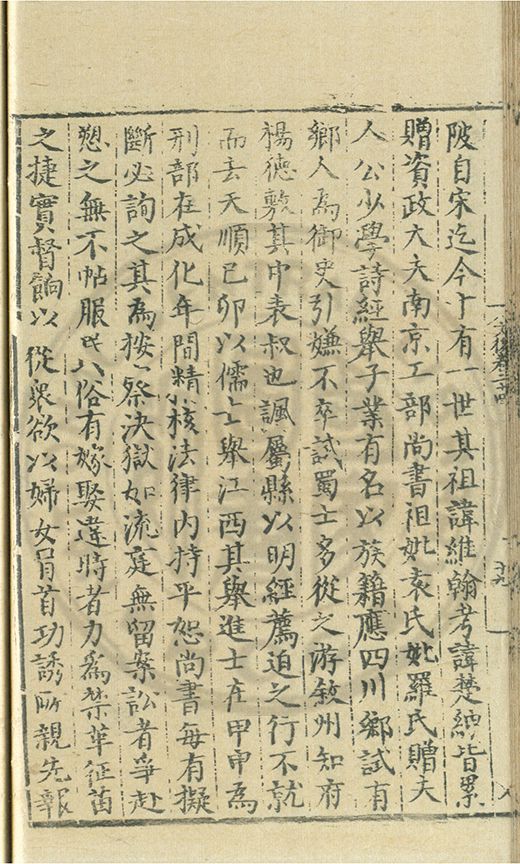 陂自宋迄今十有一世其祖諱維翰考諱楚纳皆累
贈資政大夫南京工部尚書祖妣袁氏妣羅氏贈夫
人公少學詩經舉子業有名以族籍應四川鄉試有
鄉人為御史引嫌不卒試蜀士多從之游敘州知府
楊德敷其中表叔也諷屬縣以明經薦迫之行不就
而去天順己卯以儒士舉江西其舉進士在甲申為
刑部在成化年間精核法律內持平恕尚書每有擬
斷必詢之其為按察決獄如流庭無留案訟者爭赴
愬之無不帖服民俗有嫁娶違時者力為禁革征苗
之捷實督餉以從眾欲以婦女俘首功誘所親先報